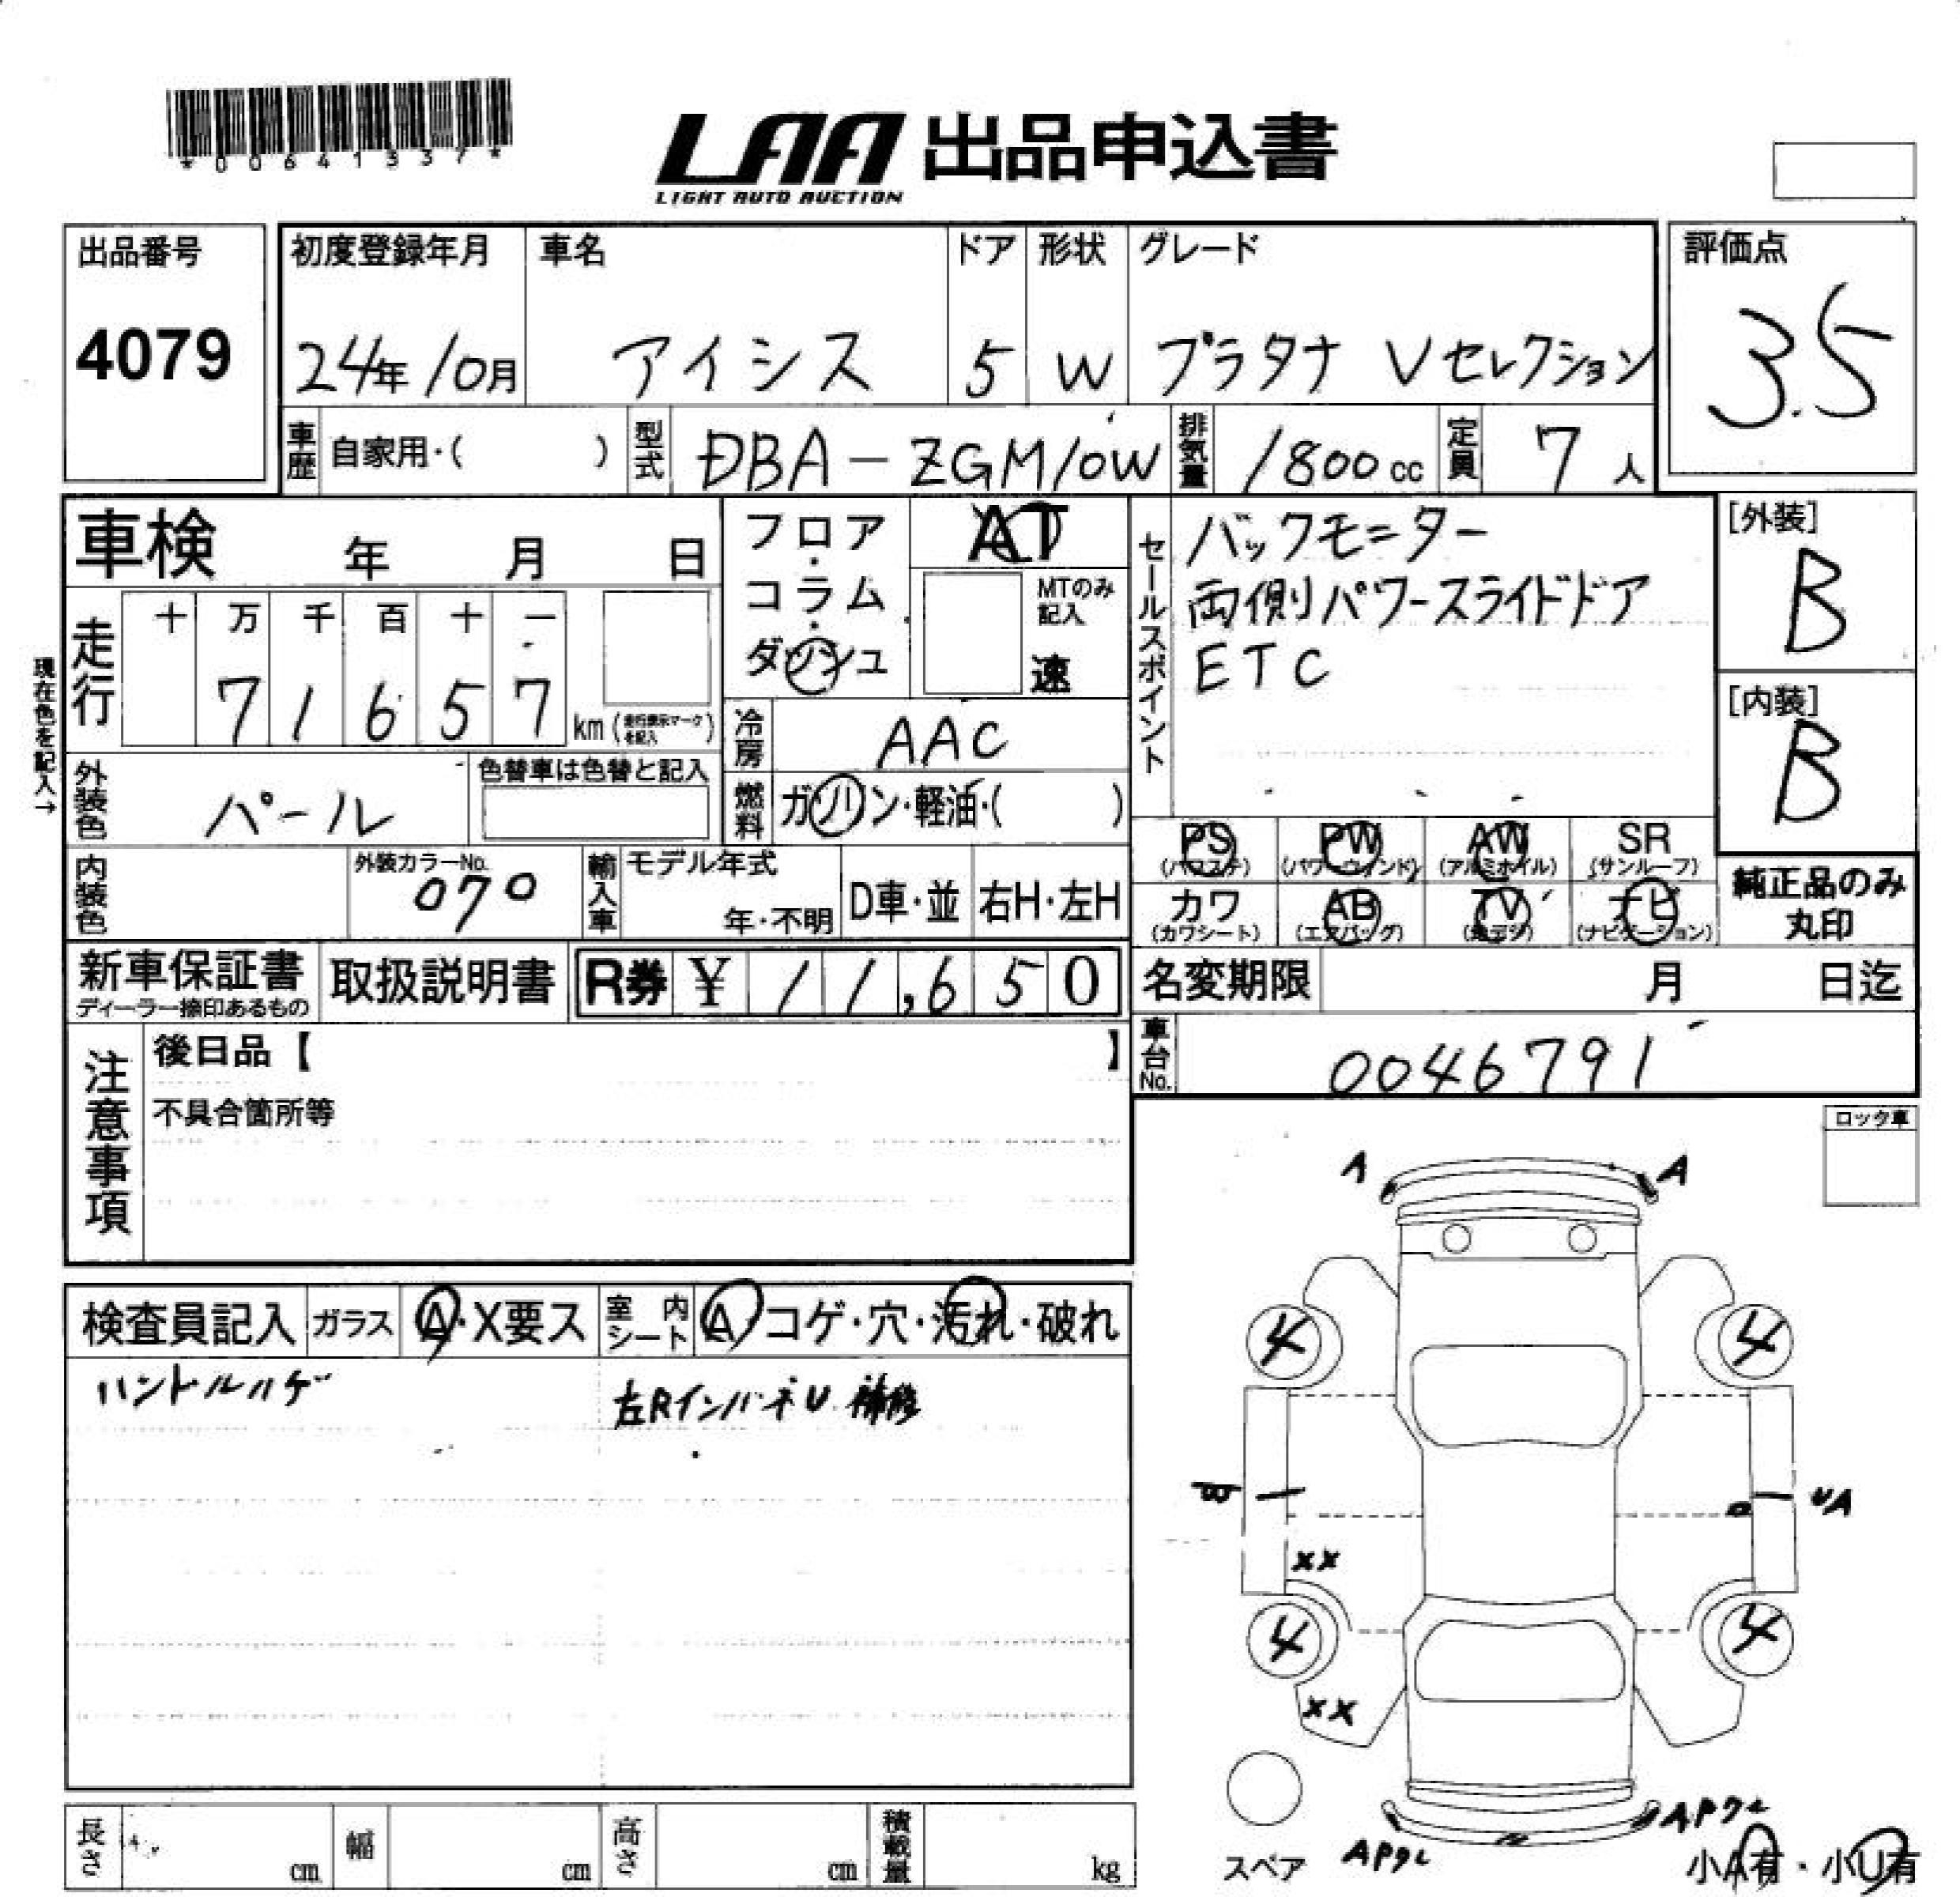 *0064133 7*
LAA 出品申込書
LIGHT AUTO AUCTION
出品番号
4079
初度登録年月
24年 10月
車名
アイシス
ドア
5
形状
W
グレード
プラタナ Vセレクション
評価点
3.5
車歴
自家用・( )
型式
DBA-ZGM10W
排気量
1800cc
定員
7人
車検 年 月 日
フロア・コラム・ダッシュ
AT
MTのみ記入
速
セールスポイント
バックモニター
両側パワースライドドア
ETC
[外装]
B
[内装]
B
現在色を記入→
走行
十 万 千 百 十 一
7 1 6 5 7
km (走行表示マークを記入)
冷房
AAC
外装色
パール
色替車は色替と記入
燃料
ガソリン・軽油・( )
PS
(パワステ)
PW
(パワーウインド)
AW
(アルミホイル)
SR
(サンルーフ)
カワ
(カワシート)
AB
(エアバッグ)
TV
(地デジ)
ナビ
(ナビゲーション)
純正品のみ
丸印
内装色
外装カラーNo.
070
輸入車
モデル年式
年・不明
D車・並
右H・左H
新車保証書
ディーラー捺印あるもの
取扱説明書
R券 ¥ 11,650
名変期限 月 日迄
車台No.
0046791
注意事項
後日品【 】
不具合箇所等
ロック車
A A
検査員記入
ガラス
A・X要ス
室内シート
A・コゲ・穴・汚れ・破れ
ハンドルハゲ
左RインパネU 補修
4 4
UA
XX
4 4
XX
スペア
小A有・小U有
長さ cm
幅 cm
高さ cm
積載量 kg